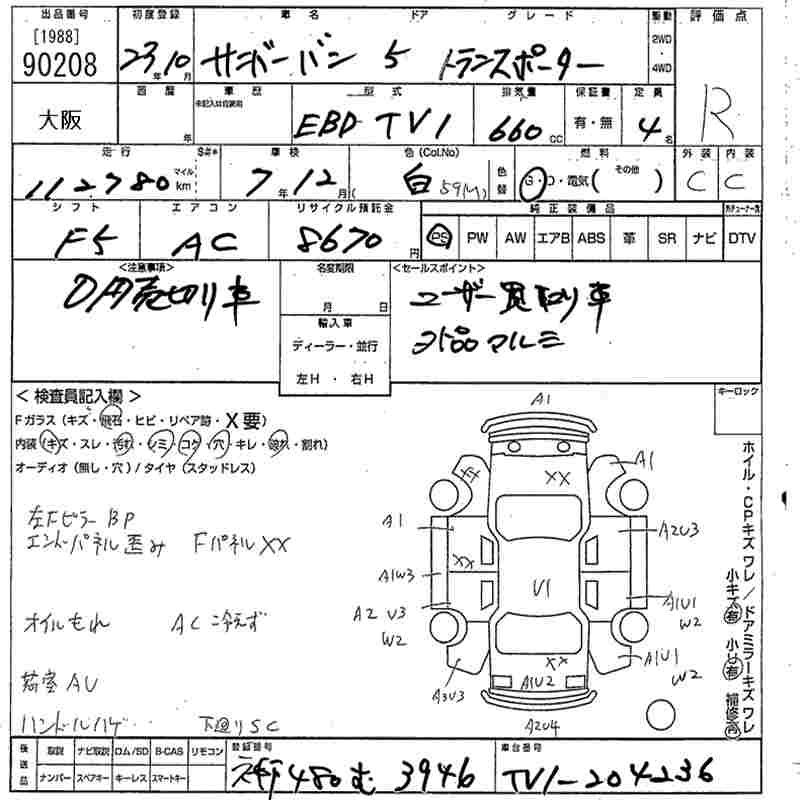 出品番号 初度登録 車名 ドア グレード 駆動 評価点
[1988]
90208 23年10月 サンバーバン 5 トランスポーター 2WD・4WD R
大阪 国歴 年 車歴 未記入は自家用 型式 排気量 保証書 定員
EBD TV1 660cc 有・無 4名
走行 S#* 車検 色(Col.No) 色替 燃料 外装 内装
112,780 マイル km 7年12月( 白 59(M) G・D・電気( その他 ) C C
シフト エアコン リサイクル預託金 純正装備品
F5 AC 8670円 PS PW AW エアB ABS 革 SR ナビ DTV
<注意事項> 名変期限 <セールスポイント>
0円売切り車 月 日 ユーザー買取り車
輸入車
ディーラー・並行
左H・右H
欠品マルミ
<検査員記入欄> キーロック
Fガラス(キズ・飛石・ヒビ・リペア跡・X要)
内装(キズ・スレ・汚れ・シミ・コゲ・穴・キレ・破れ・割れ)
オーディオ(無し・穴)/タイヤ(スタッドレス)
左Fピラー BP
エンドパネル歪み Fパネル XX
オイルもれ AC 冷えず
荷室 AU
ハンドルハゲ 下廻りSC
A1
XX XX A1
A1 A2U3
XX
A1W3 U1 A1U1
A2 U3 W2
W2
XX A1U1
A3U3 A1U2 W2
A2U4
ホイル・CPキズワレ/ドアミラーキズワレ
小キズ有 小U有 補修有
後送品 取説 ナビ取説 ロム/SD B-CAS リモコン
ナンバー スペアキー キーレス スマートキー
登録番号 車台番号
480む 3946 TV1-204236